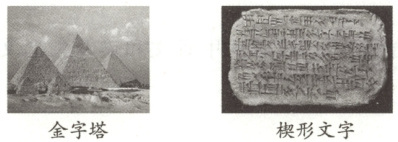 金字塔
楔形文字